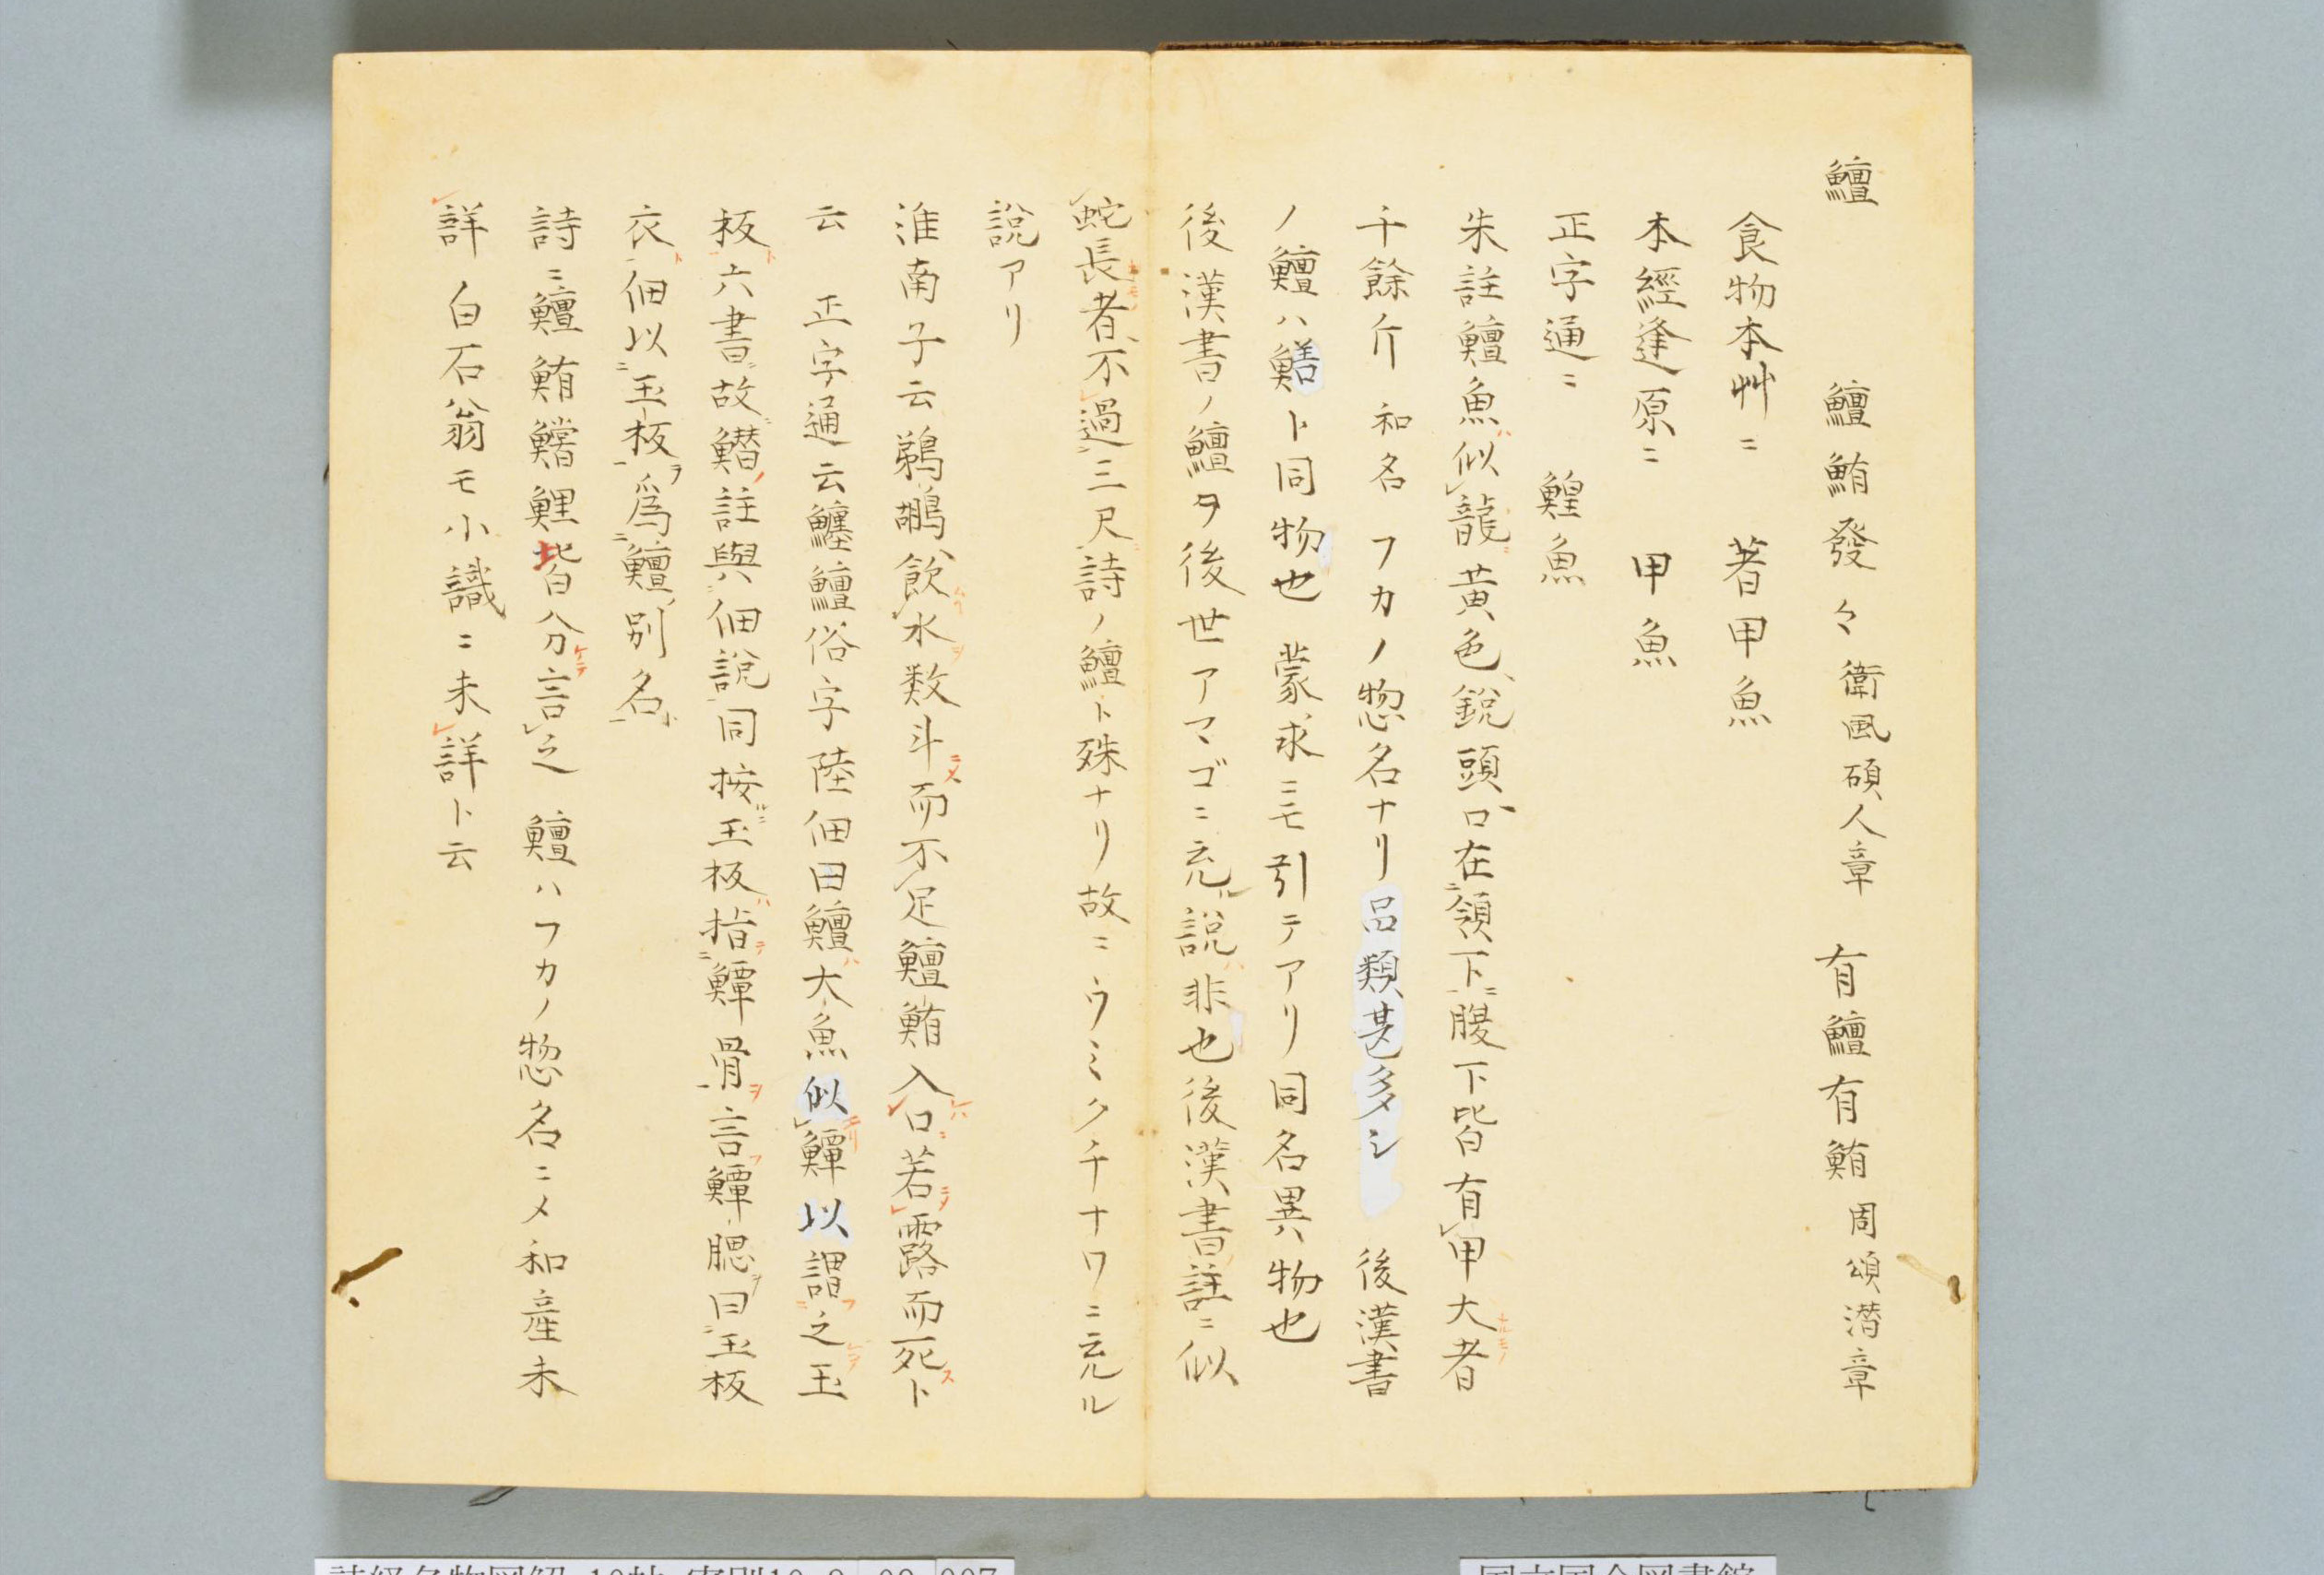 鱣　鱣鮪發々衛風碩人章　有鱣有鮪周頌潜章
食物本艸ニ　著甲魚
本經逢原ニ　甲魚
正字通ニ　鰉魚
朱註鱣魚似龍黄色鋭頭口在頷下腹下皆有甲大者
千餘斤　和名　フカノ惣名ナリ品類甚多シ　後漢書
ノ鱣ハ鱔ト同物也　蒙求ニモ引テアリ同名異物也
後漢書ノ鱣ヲ後世アマゴニ充ル説ハ非也後漢書註ニ似
蛇長者不過三尺詩ノ鱣ト殊ナリ故ニウミクチナワニ充ル
説アリ
淮南子云鵜鶘飲水数斗而不足鱣鮪入口若露而死ト
云　正字通云鱷鱣俗字陸佃曰鱣大魚似鱏以謂之玉
板六書故鱣註與佃説同按玉板指鱏骨言鱏腮曰玉板
衣佃以玉板爲鱣別名
詩ニ鱣鮪鱨鯉皆分言之　鱣ハフカノ惣名ニメ和産未
詳　白石翁モ小識ニ未詳ト云
国立国会図書館